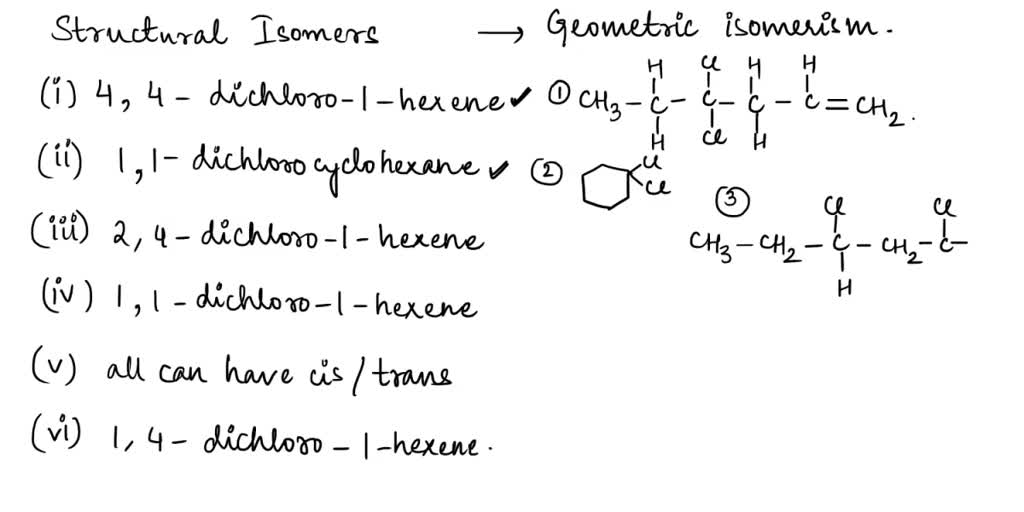 Structural Isomers → Geometric isomerism.
(i) 4,4-dichloro-1-hexene ✔
(ii) 1,1-dichlorocyclohexane ✔
(iii) 2,4-dichloro-1-hexene
(iv) 1,1-dichloro-1-hexene
(v) all can have cis/trans
(vi) 1,4-dichloro-1-hexene.
H Cl H H
① CH3-C-C-C-C=CH2.
H Cl H
② Cl
Cl
③
Cl Cl
CH3-CH2-C-CH2-C-
H